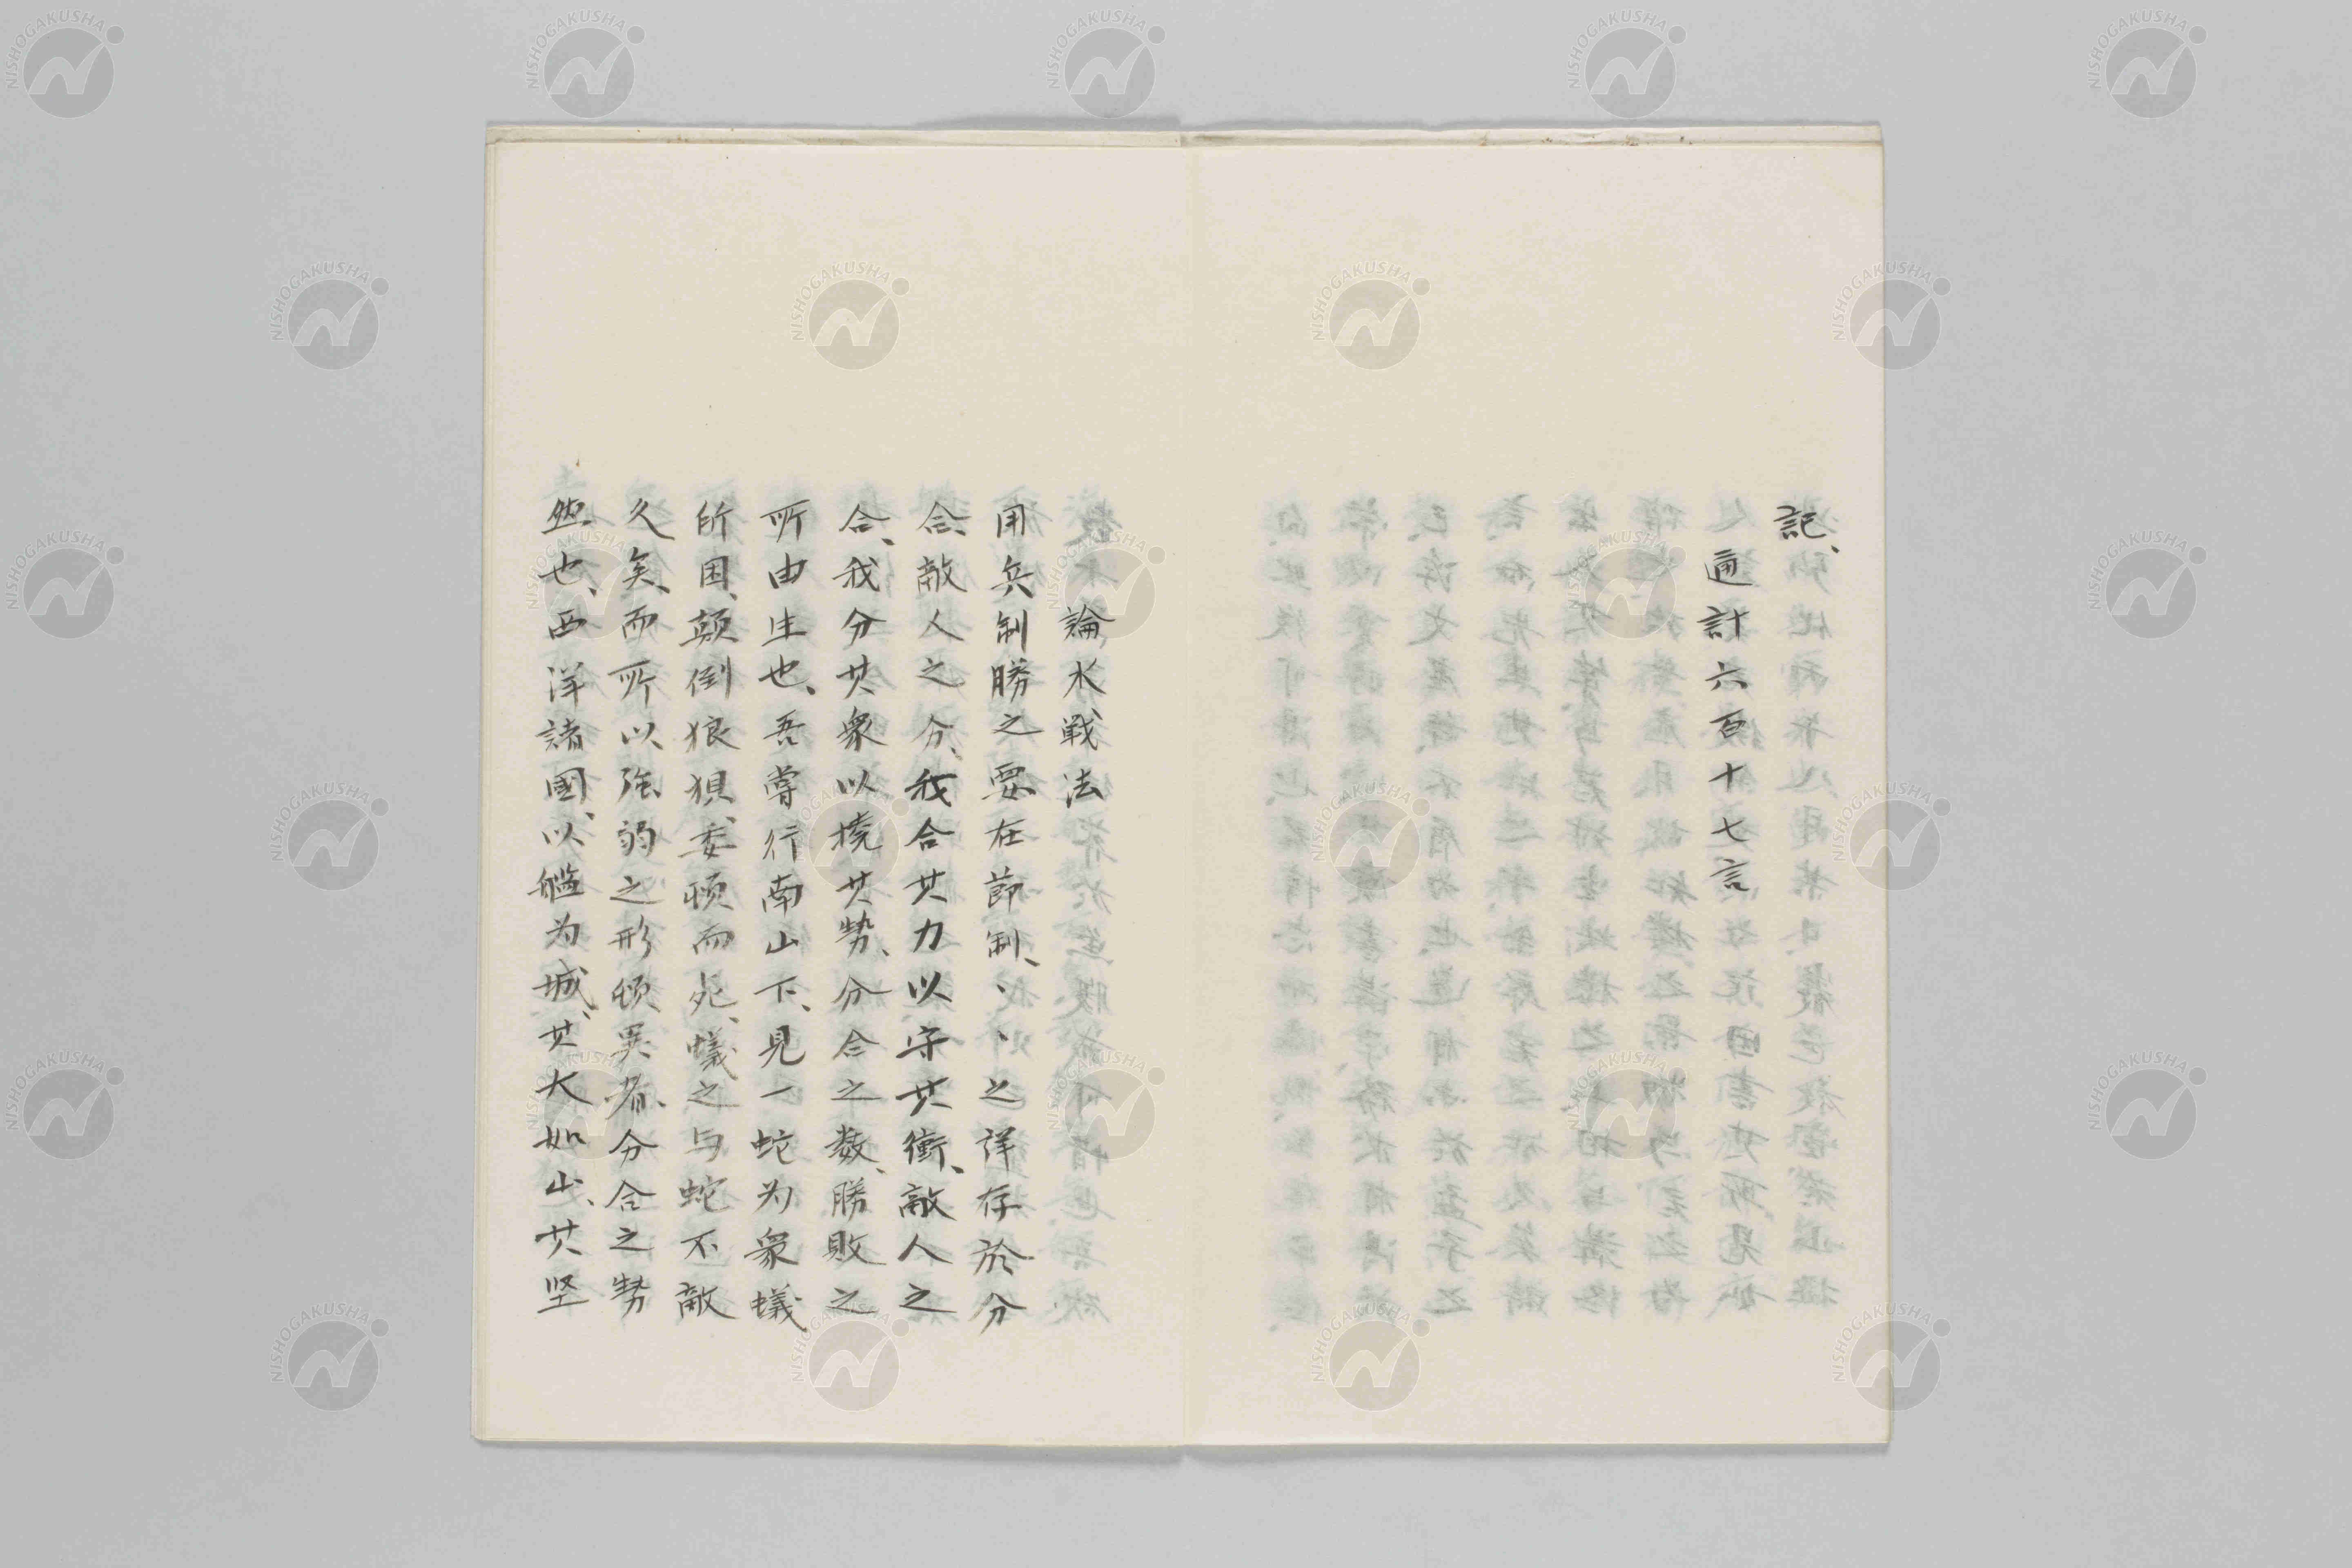 記、
通計六百十七言
論水戦法
用兵制勝之要在節制、、、之詳存於分
合、敵人之分、我合其力以守其衝、敵人之
合、我分其衆以撓其勢、分合之数、勝敗之
所由生也、吾嘗行南山下、見一蛇为衆蟻
所困、顛倒狼狽、委頓而死、蟻之与蛇不敵
久矣、而所以強弱之形頓異者、分合之勢
然也、西洋諸國、以艦为城、其大如山、其坚